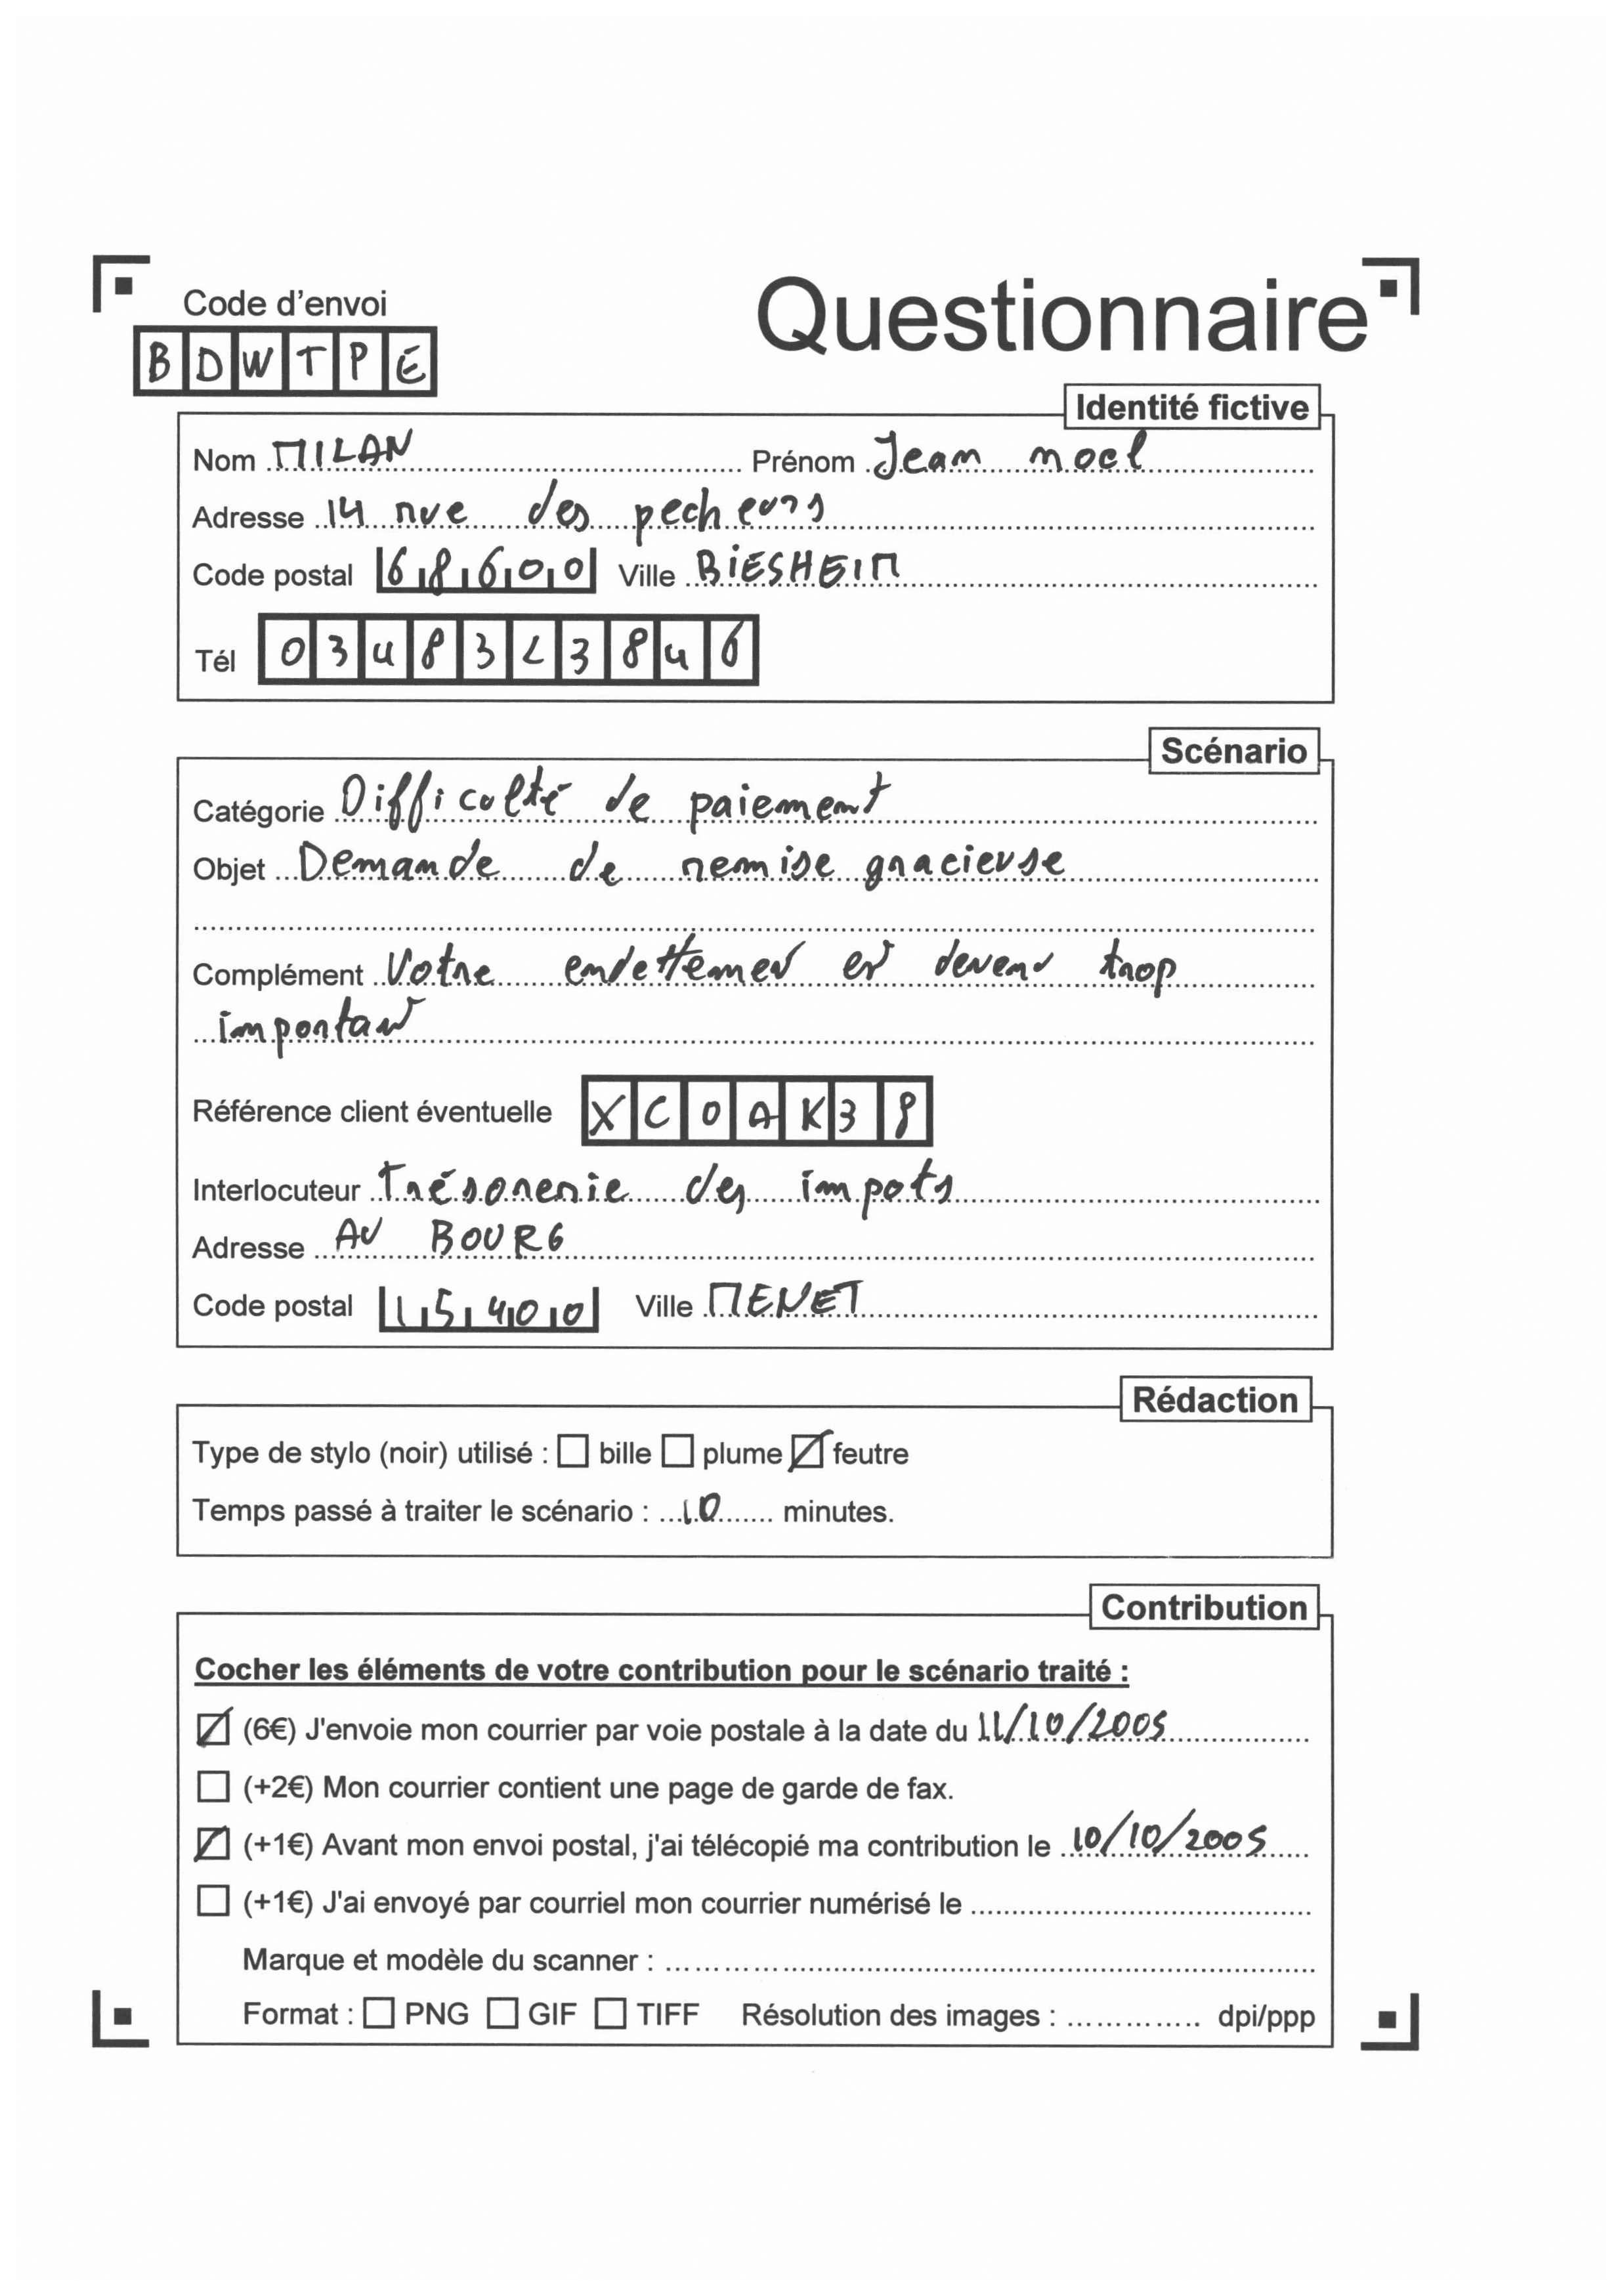 Code d'envoi
Questionnaire
BDWTPE
Identité fictive
Nom MILAN Prénom Jean noel
Adresse 14 rue des pecheurs
Code postal 68600 Ville BiESHEIM
Tél 0348323846
Scénario
Catégorie Difficulté de paiement
Objet Demande de remise gracieuse
Complément Votre endettement est devenu trop
important
Référence client éventuelle XCOAK38
Interlocuteur Trésorerie des impots
Adresse AU BOURG
Code postal 15400 Ville MENET
Rédaction
Type de stylo (noir) utilisé : ☐ bille ☐ plume ☑ feutre
Temps passé à traiter le scénario : 10 minutes.
Contribution
Cocher les éléments de votre contribution pour le scénario traité :
☑ (6€) J'envoie mon courrier par voie postale à la date du 11/10/2005
☐ (+2€) Mon courrier contient une page de garde de fax.
☑ (+1€) Avant mon envoi postal, j'ai télécopié ma contribution le 10/10/2005
☐ (+1€) J'ai envoyé par courriel mon courrier numérisé le
Marque et modèle du scanner :
Format : ☐ PNG ☐ GIF ☐ TIFF Résolution des images : dpi/ppp